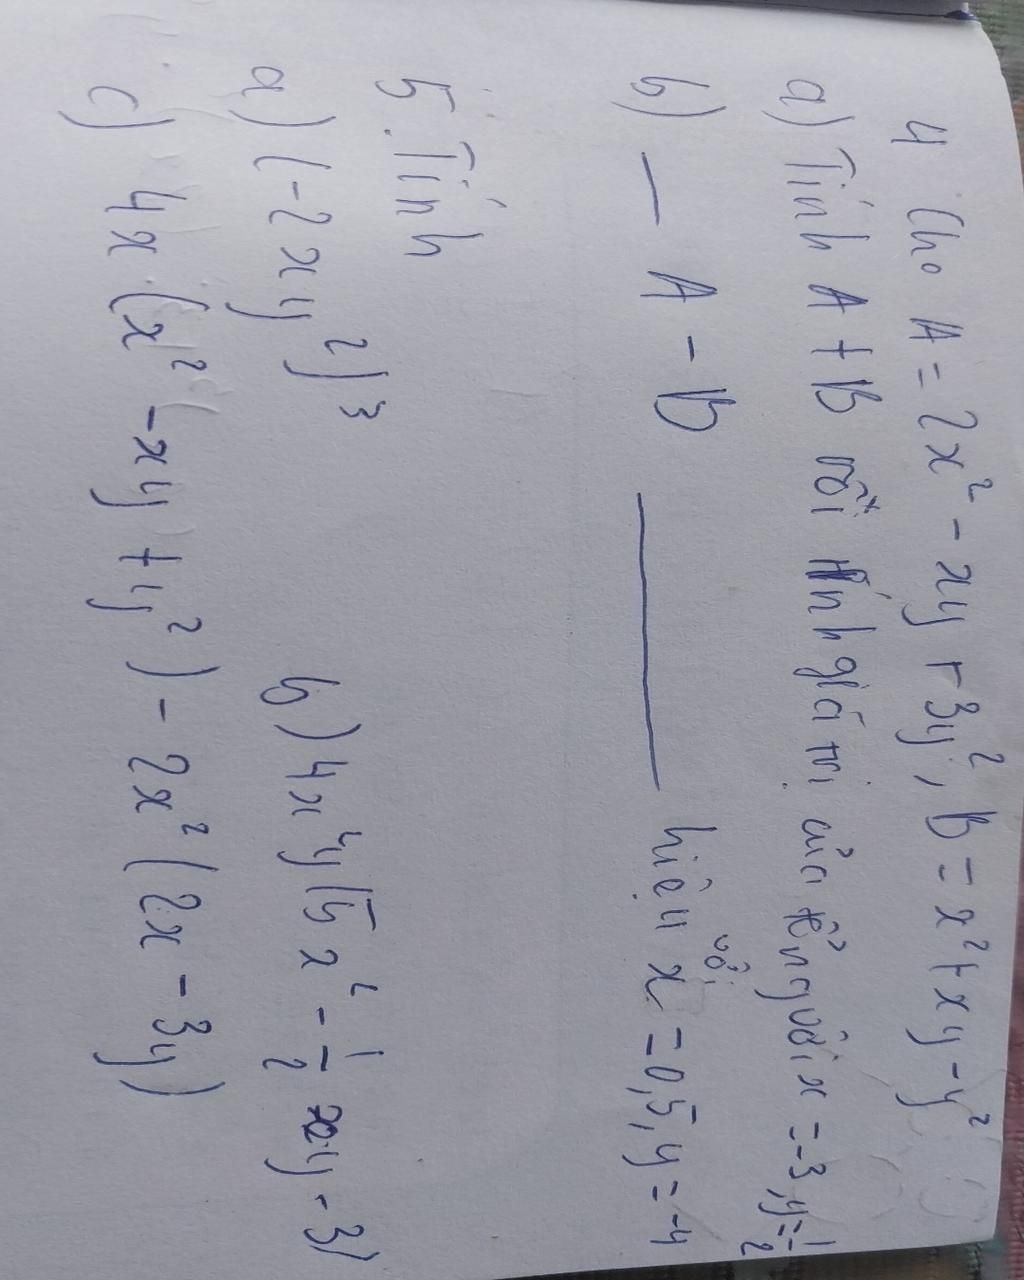 4 Cho A = 2x² - xy + 3y², B = x² + xy - y²
a) Tính A + B rồi tính giá trị của tổng với x = -3, y = 1/2
b) — A - B ——— hiệu với x = 0,5, y = -4
5. Tính
a) (-2xy²)³ b) 4x²y(5x² - 1/2 xy - 3)
c) 4x(x² - xy + y²) - 2x²(2x - 3y)